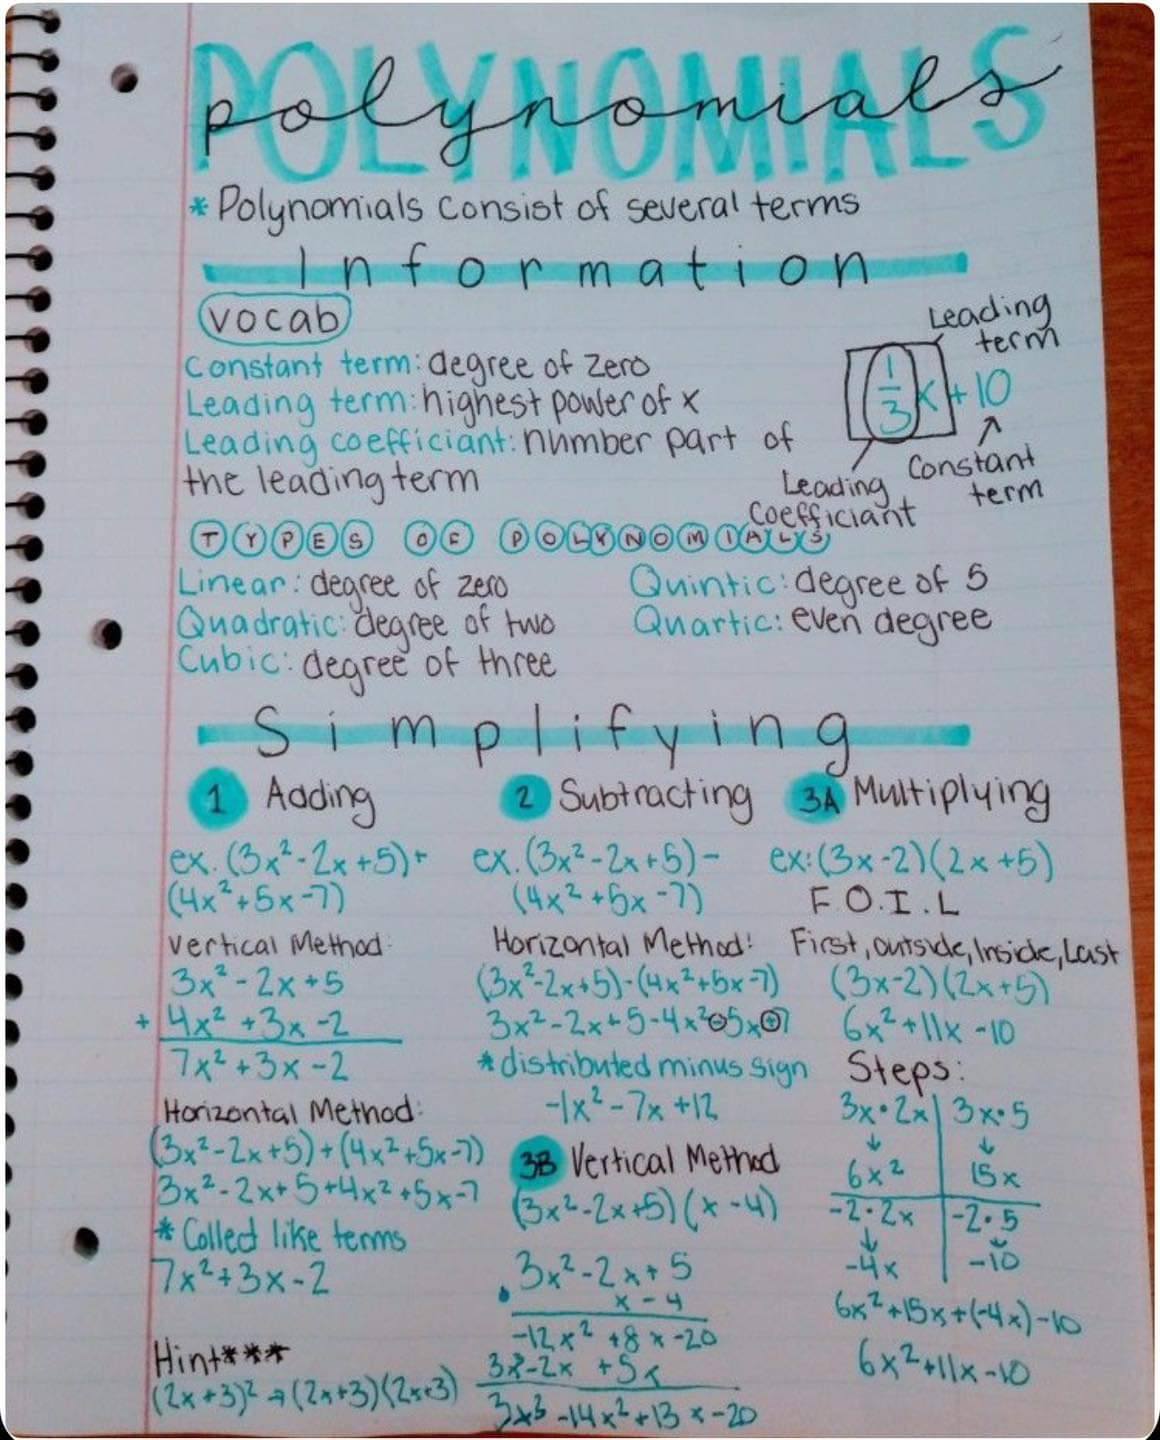 POLYNOMIALS
polynomials
* Polynomials consist of several terms
Information
vocab
Constant term: degree of zero
Leading term: highest power of x
Leading coefficiant: number part of
the leading term
Leading
term
1/3 x + 10
Leading
Coefficiant
Constant
term
TYPES OF POLYNOMIALS
Linear: degree of zero
Quadratic: degree of two
Cubic: degree of three
Quintic: degree of 5
Quartic: even degree
Simplifying
1 Adding
ex. (3x²-2x+5)+
(4x²+5x-7)
Vertical Method:
3x²-2x+5
+ 4x²+3x-2
7x²+3x-2
Horizontal Method:
(3x²-2x+5)+(4x²+5x-7)
3x²-2x+5+4x²+5x-7
* Collect like terms
7x²+3x-2
Hint***
(2x+3)²→(2x+3)(2x+3)
2 Subtracting
ex. (3x²-2x+5)-
(4x²+5x-7)
Horizontal Method:
(3x²-2x+5)-(4x²+5x-7)
3x²-2x+5-4x²-5x+7
* distributed minus sign
-1x²-7x+12
3B Vertical Method
(3x²-2x+5)(x-4)
3x²-2x+5
• x-4
-12x²+8x-20
3x³-2x +5x
3x³-14x²+13x-20
3A Multiplying
ex: (3x-2)(2x+5)
F.O.I.L
First, outside, Inside, Last
(3x-2)(2x+5)
6x²+11x-10
Steps:
3x•2x 3x•5
↓ ↓
6x² 15x
-2•2x -2•5
↓ ↓
-4x -10
6x²+15x+(-4x)-10
6x²+11x-10